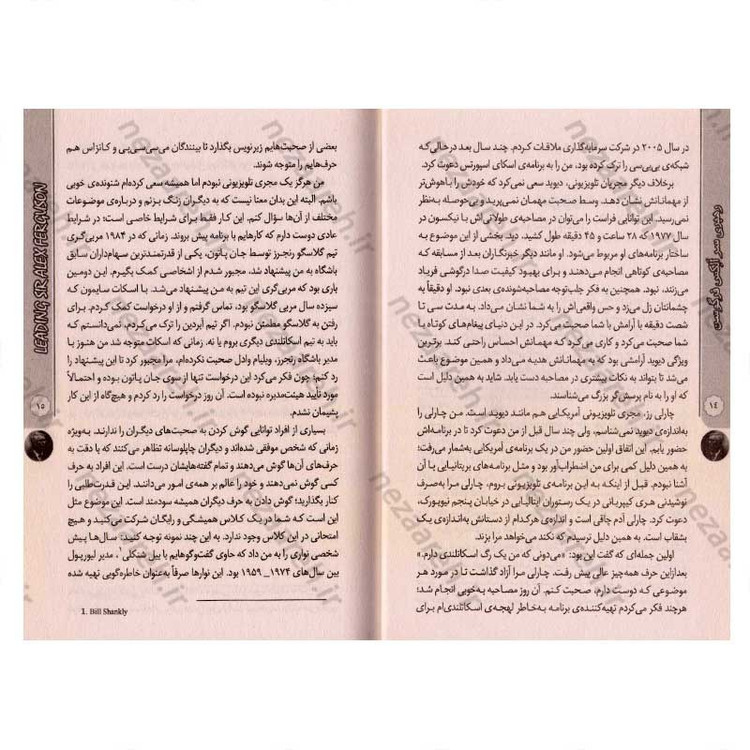 در سال ۲۰۰۵ در شرکت سرمایه‌گذاری ملاقات کردم. چند سال بعد درحالی‌که
شبکه‌ی بی‌بی‌سی را ترک کرده بود، من را به برنامه‌ی اسکای اسپورتس دعوت کرد.
برخلاف دیگر مجریان تلویزیونی، دیوید سعی نمی‌کرد که خودش را باهوش‌تر
از مهمانانش نشان دهد. وسط صحبت مهمان نمی‌پرید و بی‌حوصله به‌نظر
نمی‌رسید. این توانایی فراست را می‌توان در مصاحبه‌ی طولانی‌اش با نیکسون در
سال ۱۹۷۷ که ۲۸ ساعت و ۴۵ دقیقه طول کشید، دید. بخشی از این موضوع به
ساختار برنامه‌های او مربوط می‌شود. او مانند دیگر خبرنگاران بعد از مسابقه که
مصاحبه‌ی کوتاهی انجام می‌دهند و برای بهبود کیفیت صدا درگوشی فریاد
می‌زنند، نبود. همچنین به فکر جلب‌توجه مصاحبه‌شونده‌ی بعدی نبود. او دقیقاً به
چشمانتان زل می‌زد و حس واقعی‌اش را به شما نشان می‌داد. به مدت سی تا
شصت دقیقه با آرامش با شما صحبت می‌کرد. در این دنیای پیغام‌های کوتاه با
شما صحبت می‌کرد و کاری می‌کرد که مهمانش احساس راحتی کند. برترین
ویژگی دیوید آرامشی بود که به مهمانانش هدیه می‌داد و همین موضوع باعث
می‌شد تا بتواند به نکات بیشتری در مصاحبه دست یابد. شاید به همین دلیل است
که او را به نام پرسش‌گر بزرگ می‌شناسند.
چارلی رز، مجری تلویزیونی آمریکایی هم مانند دیوید است. من چارلی را
به‌اندازه‌ی دیوید نمی‌شناسم، ولی چند سال قبل از من دعوت کرد تا در برنامه‌اش
حضور یابم. این اتفاق اولین حضور من در یک برنامه‌ی آمریکایی به‌شمار می‌رفت؛
به همین دلیل کمی برای من اضطراب‌آور بود و مثل برنامه‌های بریتانیایی با آن
آشنا نبودم. قبل از اینکه به این برنامه‌ی تلویزیونی بروم، چارلی مرا به‌صرف
نوشیدنی هری کیپریانی در یک رستوران ایتالیایی در خیابان پنجم نیویورک،
دعوت کرد. چارلی آدم چاقی است و اندازه‌ی هرکدام از دستانش به‌اندازه‌ی یک
بشقاب است. به همین دلیل ترسیدم که نکند می‌خواهد مرا بزند.
اولین جمله‌ای که گفت این بود: «می‌دونی که من یک رگ اسکاتلندی دارم.»
بعدازاین حرف همه‌چیز عالی پیش رفت. چارلی مرا آزاد گذاشت تا در مورد هر
موضوعی که دوست دارم، صحبت کنم. آن روز مصاحبه به‌خوبی انجام شد؛
هرچند فکر می‌کردم تهیه‌کننده‌ی برنامه به‌خاطر لهجه‌ی اسکاتلندی‌ام برای
رهبری سر الکس فرگوسن
۱۴
بعضی از صحبت‌هایم زیرنویس بگذارد تا بینندگان می‌سی‌سی‌پی و کانزاس هم
حرف‌هایم را متوجه شوند.
من هرگز یک مجری تلویزیونی نبودم اما همیشه سعی کرده‌ام شنونده‌ی خوبی
باشم. البته این بدان معنا نیست که به دیگران زنگ بزنم و درباره‌ی موضوعات
مختلف از آن‌ها سؤال کنم. این کار فقط برای شرایط خاصی است؛ در شرایط
عادی دوست دارم که کارهایم با برنامه پیش بروند. زمانی که در ۱۹۸۴ مربی‌گری
تیم گلاسگو رنجرز توسط جان پاتون، یکی از قدرتمندترین سهام‌داران سابق
باشگاه به من پیشنهاد شد، مجبور شدم از اشخاصی کمک بگیرم. این دومین
باری بود که مربی‌گری این تیم به من پیشنهاد می‌شد. با اسکات سایمون که
سیزده سال مربی گلاسگو بود، تماس گرفتم و از او درخواست کمک کردم. برای
رفتن به گلاسگو مطمئن نبودم. اگر تیم آبردین را ترک می‌کردم، نمی‌دانستم که
باید به تیم اسکاتلندی دیگری بروم یا نه. زمانی که اسکات متوجه شد من هنوز با
مدیر باشگاه رنجرز، ویلیام وادل صحبت نکرده‌ام، مرا مجبور کرد تا این پیشنهاد را
رد کنم؛ چون فکر می‌کرد این درخواست تنها از سوی جان پاتون بوده و احتمالاً
مورد تأیید هیئت‌مدیره نبوده است. آن روز درخواست را رد کردم و هیچ‌گاه از این کار
پشیمان نشدم.
بسیاری از افراد توانایی گوش کردن به صحبت‌های دیگران را ندارند. به‌ویژه
زمانی که شخص موفقی شده‌اند و دیگران چاپلوسانه تظاهر می‌کنند که با دقت به
حرف‌های آن‌ها گوش می‌دهند و تمام گفته‌هایشان درست است. این افراد به حرف
کسی گوش نمی‌دهند و خود را عالم بر همه‌ی امور می‌دانند. این قدرت‌طلبی را
کنار بگذارید؛ گوش دادن به حرف دیگران همیشه سودمند است. این موضوع مثل
این است که شما در یک کلاس همیشگی و رایگان شرکت می‌کنید و هیچ
امتحانی در این کلاس وجود ندارد. به این چند نمونه توجه کنید: سال‌ها پیش
شخصی نواری را به من داد که حاوی گفت‌وگوهایم با بیل شنکلی۱، مدیر لیورپول
بین سال‌های ۱۹۷۴_ ۱۹۵۹ بود. این نوارها صرفاً به‌عنوان خاطره‌گویی تهیه شده
1. Bill Shankly
LEADING SIR ALEX FERGUSON
۱۵
nezaareh.ir